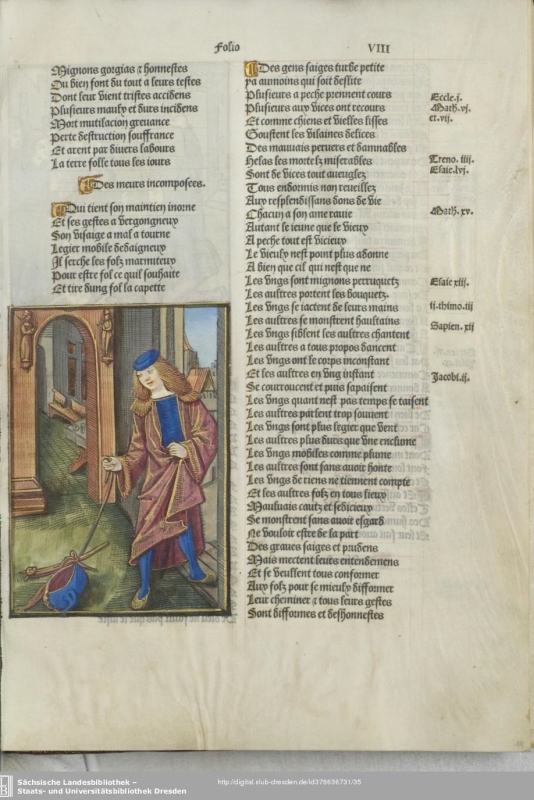 Folio VIII
Mignons gorgias ⁊ honnestes
Ou bien font du tout a leurs testes
Dont leur vient tristes accidens
Plusieurs maulx et durs incidens
Mort mutilacion greuance
Perte destruction souffrance
Et arent par diuers labours
La terre folle tous les iours
Des meurs incomposees.
Qui tient son maintien inorne
Et ses gestes a vergongneux
Son visaige a mal a tourne
Legier mobile desdaigneux
Il serche les folz marmiteux
Pour estre fol ce quil souhaite
Et tire dung fol la capette
Des gens saiges turbe petite
ya aumoins qui soit deslite
Plusieurs a peche prennent cours
Plusieurs aux vices ont recours
Et comme chiens et vielles lisses
Goustent les vilaines delices
Des mauuais peruers et damnables
Helas les mortelz miserables
Sont de vices tout aueuglez
Tous endormis non reueillez
Aux resplendissans dons de vie
Chacun a son ame rauie
Autant le ieune que le vieux
A peche tout est vicieux
Le vieulx nest point plus adonne
A bien que cil qui nest que ne
Les vngs sont mignons perruquetz
Les aultres portent les bouquetz.
Les vngs se iactent de leurs mains
Les aultres se monstrent haultains
Les vngs siblent les aultres chantent
Les aultres a tous propos dancent
Les vngs ont le corps inconstant
Et les aultres en vng instant
Se courroucent et puis sapaisent
Les vngs quant nest pas temps se taisent
Les aultres parlent trop souuent
Les vngs sont plus legier que vent
Les aultres plus durs que vne enclume
Les vngs mobiles comme plume
Les aultres sont sans auoir honte
Les vngs de riens ne tiennent compte
Et les aultres folz en tous lieux
Mauluais cautz et sedicieux
Se monstrent sans auoir esgard
Ne vouloir estre de la part
Des graues saiges et prudens
Mais mectent leurs entendemens
Et se veullent tous conformer
Aux folz pour se mieulx difformer
Leur cheminer ⁊ tous leurs gestes
Sont difformes et deshonnestes
Eccle.j.
Math.vj.
et.vij.
Treno.iiij.
Esaie.lvj.
Math.xv.
Esaie xiij.
ii.thimo.iij
Sapien.xij
Jacobi.ij.
Sächsische Landesbibliothek –
Staats- und Universitätsbibliothek Dresden
http://digital.slub-dresden.de/id378636731/35